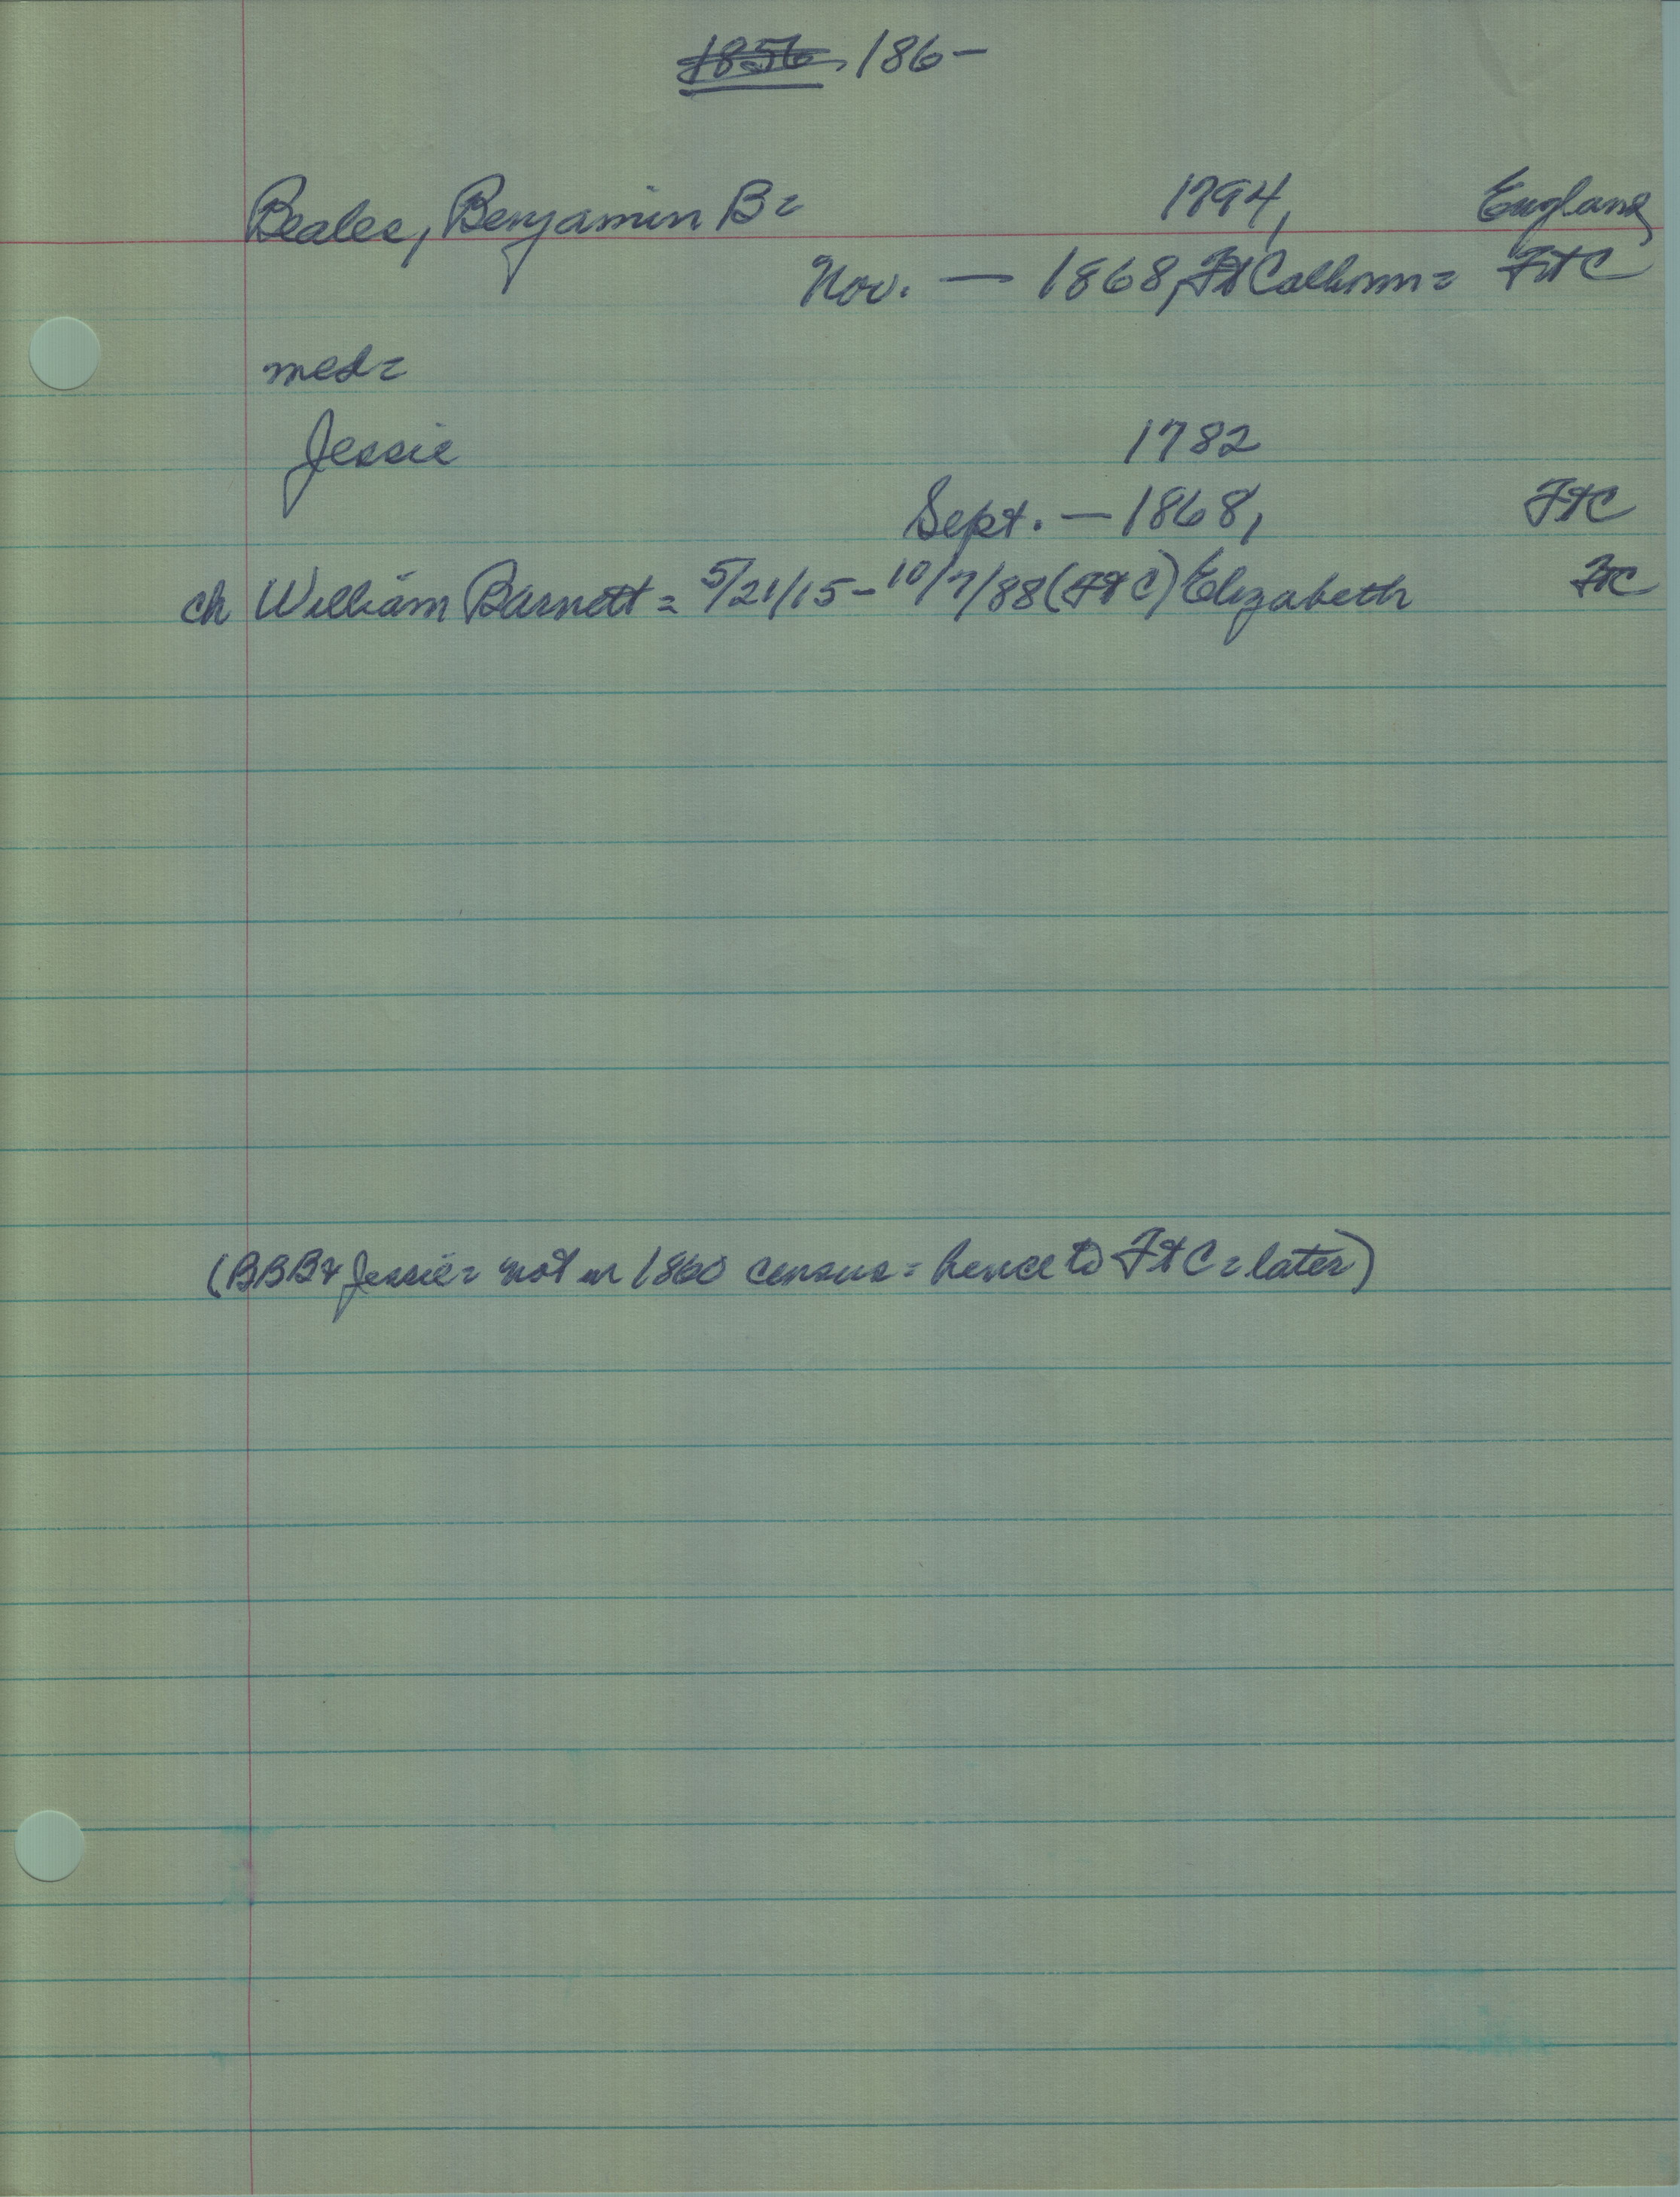 1856, 186—
Beales, Benjamin B= 1794, England
Nov. — 1868, Ft Calhoun= FtC
med=
Jessie 1782
Sept. — 1868, FtC
ch William Barnett = 5/21/15 - 10/7/88 (Ft C) Elizabeth FtC
(BBB & Jessie= not in 1860 census = hence to Ft C = later)